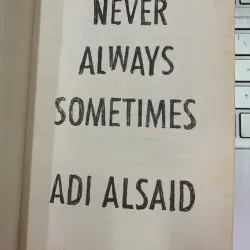 NEVER
ALWAYS
SOMETIMES
ADI ALSAID